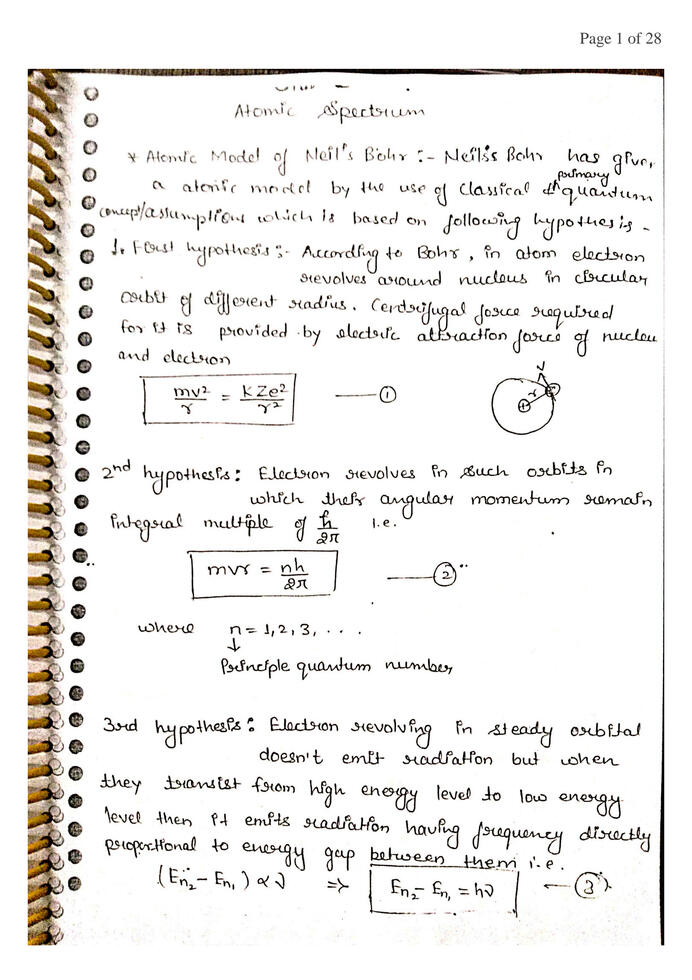 Page 1 of 28
Atomic Spectrum
* Atomic Model of Neil's Bohr :- Neils's Bohr has given
primary
a atomic model by the use of Classical quantum
concept/assumptions which is based on following hypothesis -
1. First hypothesis :- According to Bohr, in atom electron
revolves around nucleus in circular
orbit of different radius. Centrifugal force required
for it is provided by electric attraction force of nucleu
and electron
mv²/r = KZe²/r² —— ①
V
r
+
2nd hypothesis: Electron revolves in such orbits in
which their angular momentum remain
integral multiple of ħ/2π i.e.
mvr = nh/2π —— ②
where n = 1, 2, 3, . . .
↓
Principle quantum number
3rd hypothesis: Electron revolving in steady orbital
doesn't emit radiation but when
they transist from high energy level to low energy
level then it emits radiation having frequency directly
proportional to energy gap between them i.e.
(En₂ - En₁) ∝ ν => En₂ - En₁ = hν —— ③